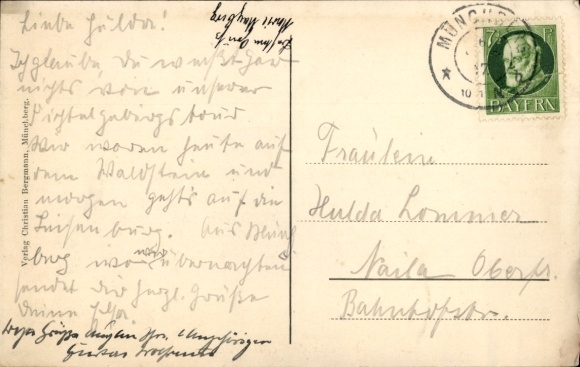 Liebe Hulda!
Ich glaube, du weißt gar
nichts von unserer
Fichtelgebirgstour.
Wir waren heute auf
dem Waldstein und
morgen geht's auf die
Luisenburg. Aus Münch
berg wo wir übernachten
sendet dir herzl. Grüße
deine
Verlag Christian Bergmann, Münchberg.
MÜNCHB
7 Pf
BAYERN
Fräulein
Hulda Lommer
Naila Oberfr.
Bahnhofstr.